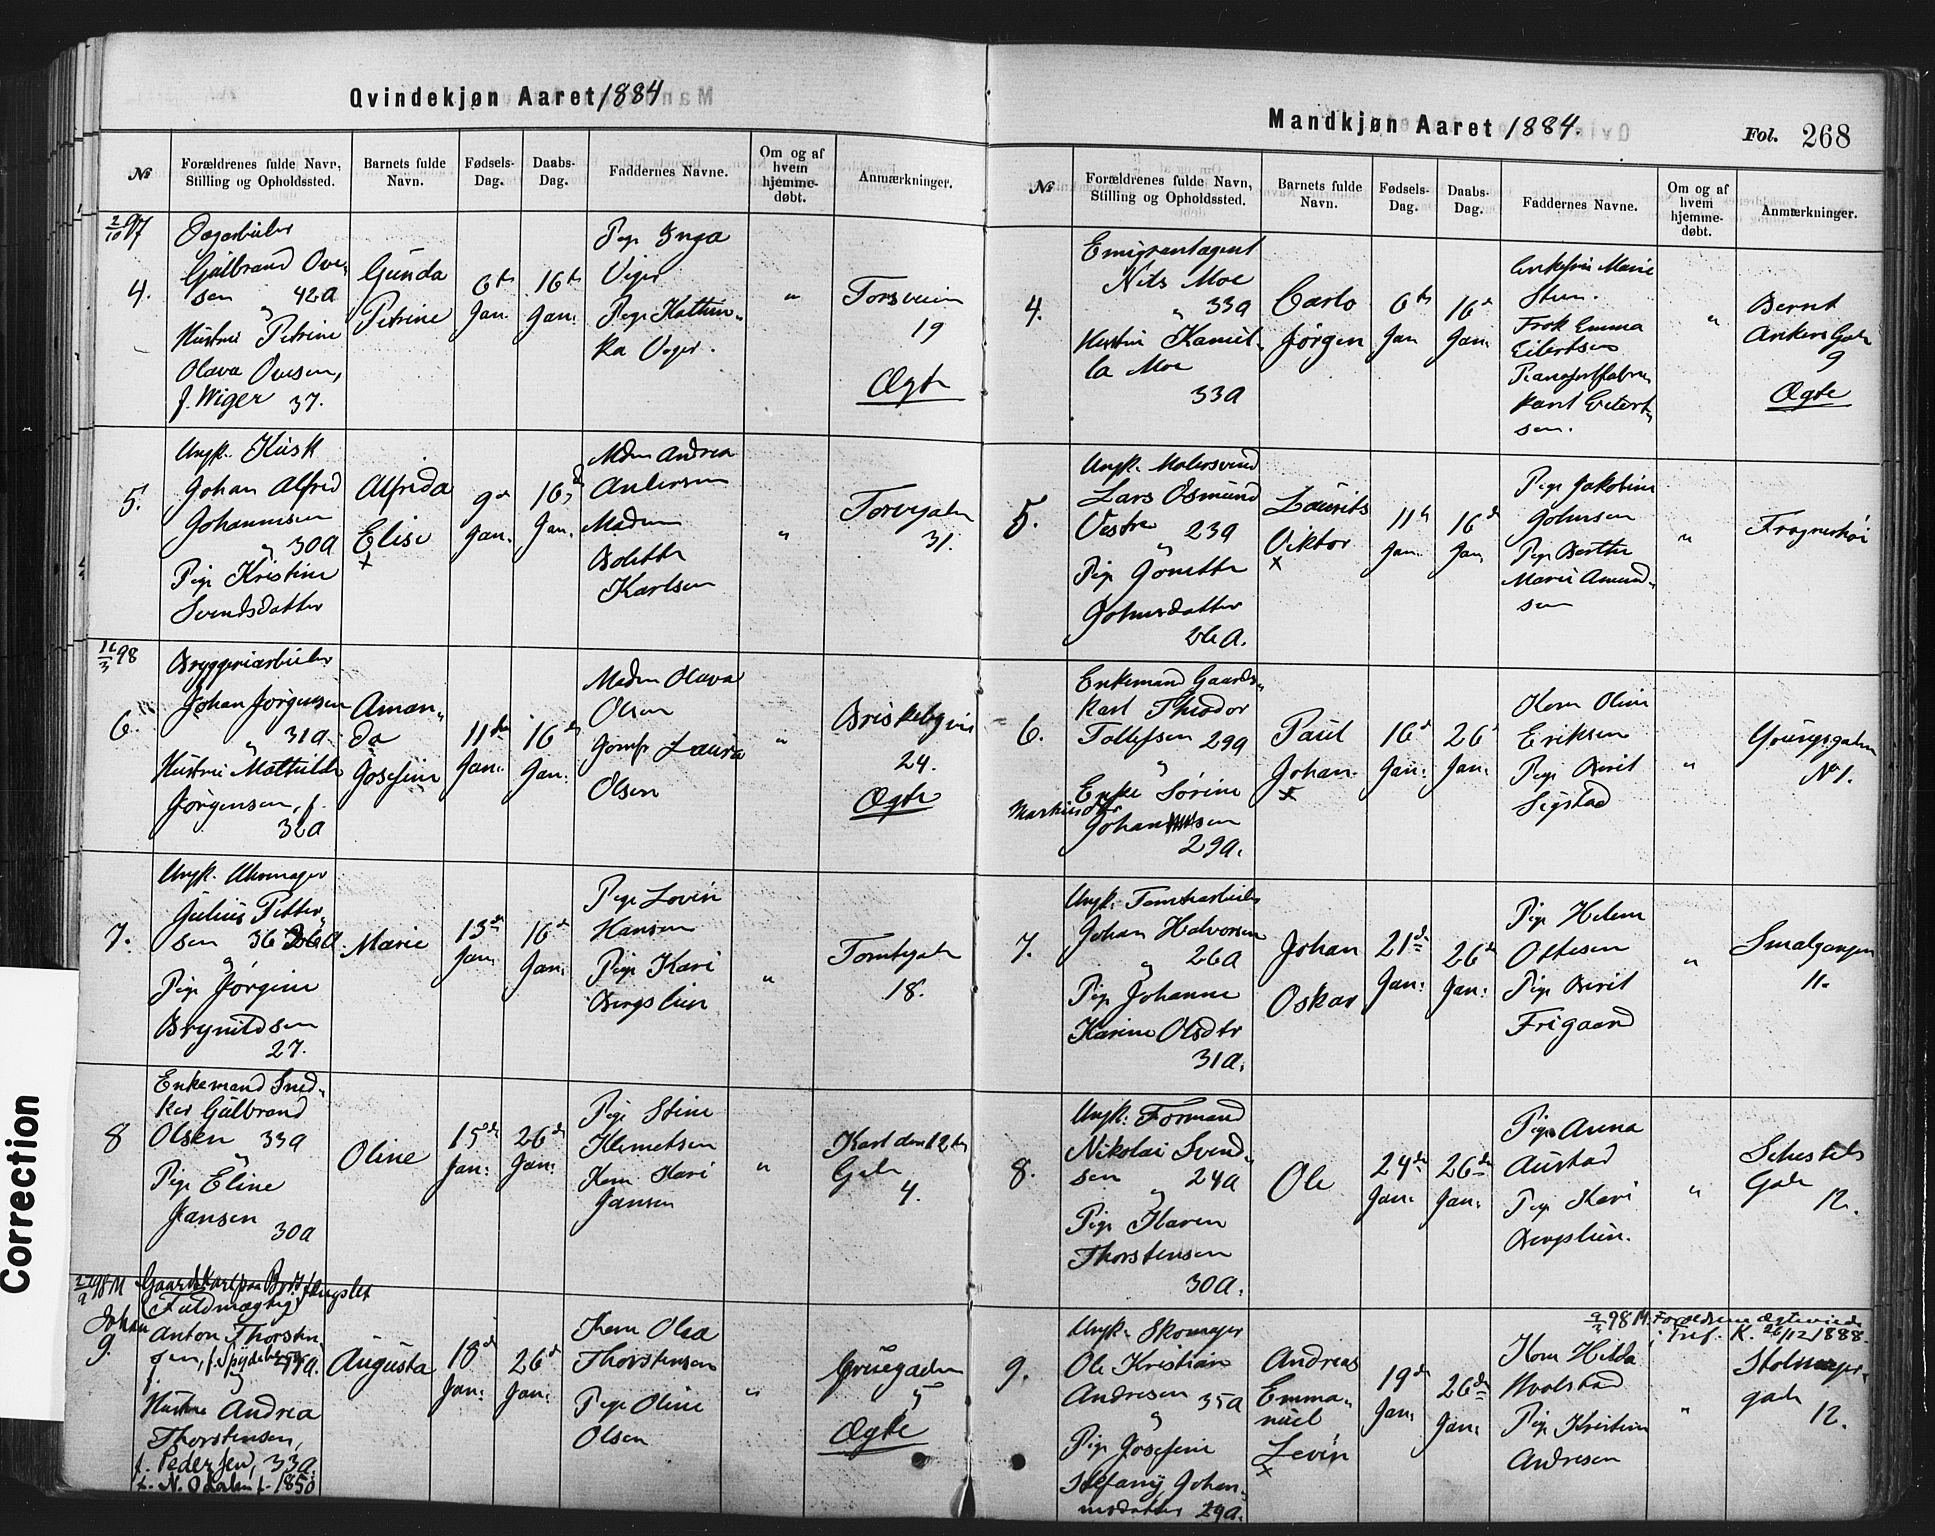 Qvindekjøn Aaret 1884
№
Forældrenes fulde Navn,
Stilling og Opholdssted.
Barnets fulde
Navn.
Fødsels-
Dag.
Daabs-
Dag.
Faddernes Navne.
Om og af
hvem
hjemme-
døbt.
Anmærkninger.
4.
Gulbrand Ove-
sen 42a
og
Hustru Petrine
Olava Ovesen,
f. Wiger 37.
Gunda
Petrine
6te
Jan.
16de
Jan.
Pige Inga
Viger
Pige Kathin-
ka Viger.
"
Torsveien
19
Ægte
5.
Ungk. Kusk
Johan Alfred
Johannesen
og 30a
Pige Kristine
Svendsdatter
Alfrida
Elise
x
9de
Jan.
16de
Jan.
Mdm Andrea
Andersen
Madm
Bolette
Karlsen
"
Torvegaden
31.
16/3 98
6.
Bryggeriarbeider
Johan Jørgensen
og 31a
Hustru Mathilde
Jørgensen, f.
32a
Aman-
da
Josefine
11te
Jan.
16de
Jan.
Madm Olava
Olsen
Jomfr Laura
Olsen
"
Briskebyveien
24.
Ægte
7.
Ungk. Uhrmager
Julius Petter-
sen 36
og
Pige Jørgine
Brynildsen
27.
Marie
13de
Jan.
16de
Jan.
Pige Lovin
Hansen
Pige Kari
Bergslien
"
Tomtegaden
18.
8
Enkemand Sned-
ker Gulbrand
Olsen 33a
og
Pige Eline
Jansen
30a
Oline
15de
Jan.
26de
Jan.
Pige Stine
Klemetsen
Kone Kari
Jansen
"
Karl den 12tes
Gade
4.
Gaardskarl paa Bodsfængslet
(Fuldmægtig)
9.
Johan
Anton Thorsten-
sen, f. Spydeberg
og
Hustru Andrea
Thorstensen,
f. Pedersen, 33a.
f. N. Odalen f. 1850
Augusta
18de
Jan.
26de
Jan.
Kone Olea
Thorstensen
Pige Oline
Olsen
"
Gruegaden
5
Ægte
Mandkjøn Aaret 1884.
Fol. 268
№
Forældrenes fulde Navn,
Stilling og Opholdssted.
Barnets fulde
Navn.
Fødsels-
Dag.
Daabs-
Dag.
Faddernes Navne.
Om og af
hvem
hjemme-
døbt.
Anmærkninger.
4.
Emigrantagent
Nils Moe
og 33a
Hustru Kamil-
la Moe
33a
Carlo
Jørgen
6te
Jan
16de
Jan.
Enkefru Marie
Steen.
Frøk Emma
Eilertsen
Pianofortfabri-
kant Eilert-
sen.
"
Bernt
Ankers Gade
9
Ægte
5.
Ungk. Malersvend
Lars Osmund
Vestre 23a
og
Pige Gonette
Johnsdatter
26a.
Laurits
Viktor
x
11te
Jan.
16de
Jan.
Pige Jakobine
Johnsen
Pige Berthe
Marie Amund-
sen
"
6.
Enkemand Gaards-
karl Theodor
Tollefsen 29a
og
Enke Sørine
Martinsdtr
Johansen
29a.
Paul
Johan.
x
16de
Jan.
26de
Jan.
Kone Oline
Eriksen
Pige Berit
Sigstad
"
Youngsgaden
No 1.
7.
Ungk. Tomtearbeider
Johan Halvorsen
og 26a
Pige Johanne
Karine Olsdtr
31a.
Johan
Oskar
21de
Jan.
26de
Jan.
Pige Helene
Ottesen
Pige Berit
Frigaard
"
Smalgangen
11.
8.
Ungk. Formand
Nikolai Svend-
sen 24a
og
Pige Karen
Thorstensen
30a.
Ole
24de
Jan.
26de
Jan.
Pige Anna
Austad
Pige Kari
Bergslien.
"
Sehesteds
Gade
12.
9.
Ungk. Skomager
Ole Kristian
Andresen 35a
og
Pige Josefine
Stefany Johan-
nesdatter 29a.
Andreas
Emma-
nuel
Levin
x
19de
Jan.
26de
Jan.
Kone Hilda
Hvalstad
Pige Kristine
Andresen
"
2/3 98 M. Forældrene ægteviede
i Tref. K. 26/12 1888.
Stolmager-
gade
12.
Correction